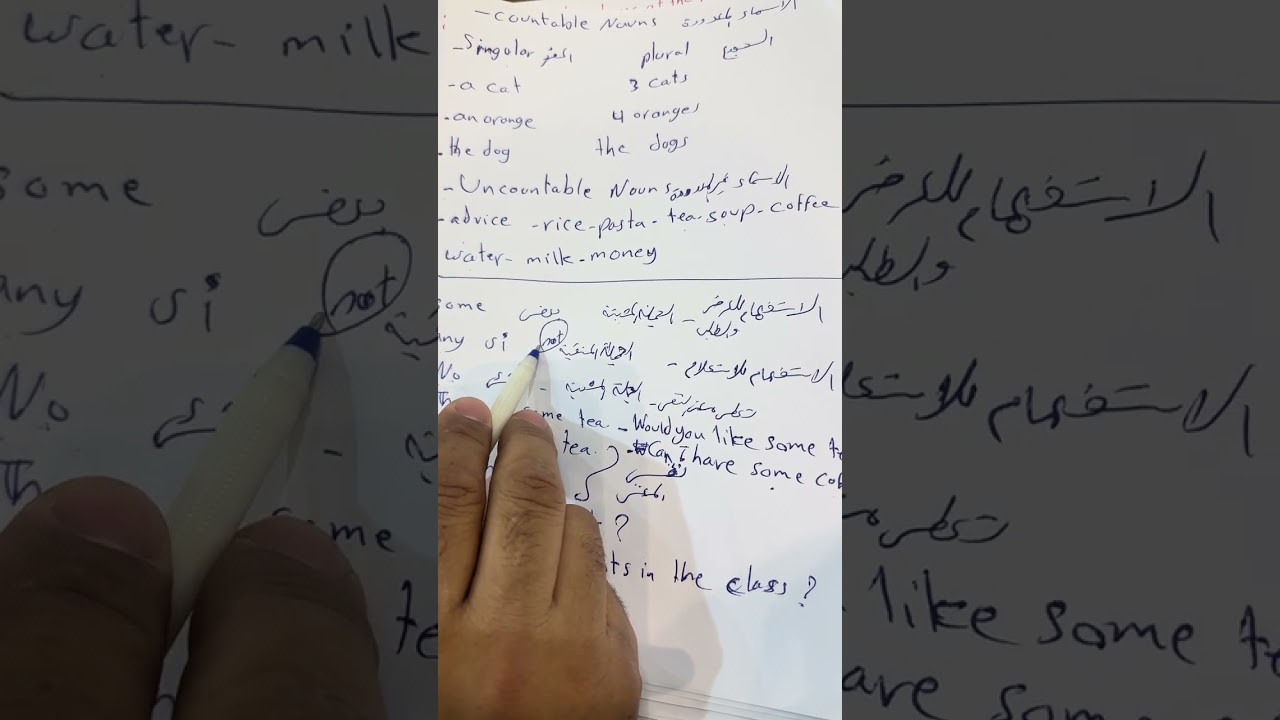 - Countable Nouns الاسماء المعدودة
- Singular المفرد plural الجمع
- a cat 3 cats
- an orange 4 oranges
- the dog the dogs
- Uncountable Nouns الاسماء غير المعدودة
- advice - rice - pasta - tea - soup - coffee
water - milk - money
some بعض الجملة المثبتة - الاستفهام للعرض
والطلب
any أي not الجملة المنفية - الاستفهام للاستعلام
No الجملة المثبتة - تعطي معنى النفي
some tea - Would you like some
tea. - Can I have some
نفس
المعنى
?
in the class ?